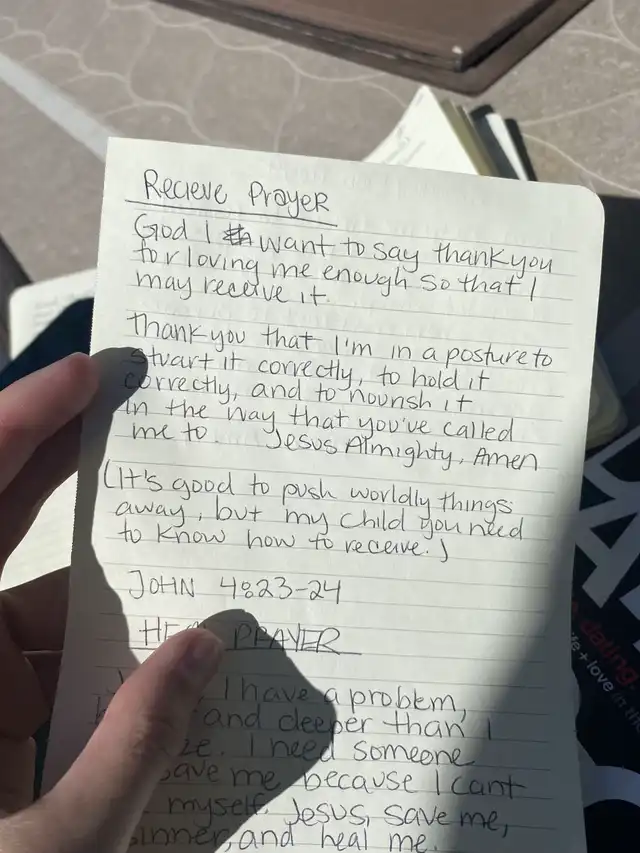 Recieve Prayer
God I want to say thankyou
for loving me enough so that I
may receive it.
Thankyou that I'm in a posture to
stuart it correctly, to hold it
correctly, and to nourish it
in the way that you've called
me to. Jesus Almighty, Amen
(It's good to push worldly things
away, but my child you need
to know how to receive.)
JOHN 4:23-24
PRAYER
I have a problem,
and deeper than I
I need someone
save me because I cant
myself. Jesus, save me,
sinner, and heal me.
dating
life + love in the